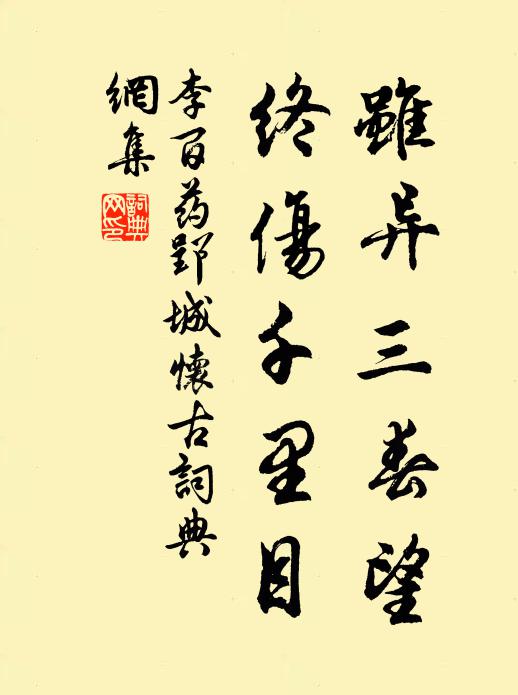 雖异三春望
終傷千里目
李百药郢城懷古詞典
網集
詞典
网印